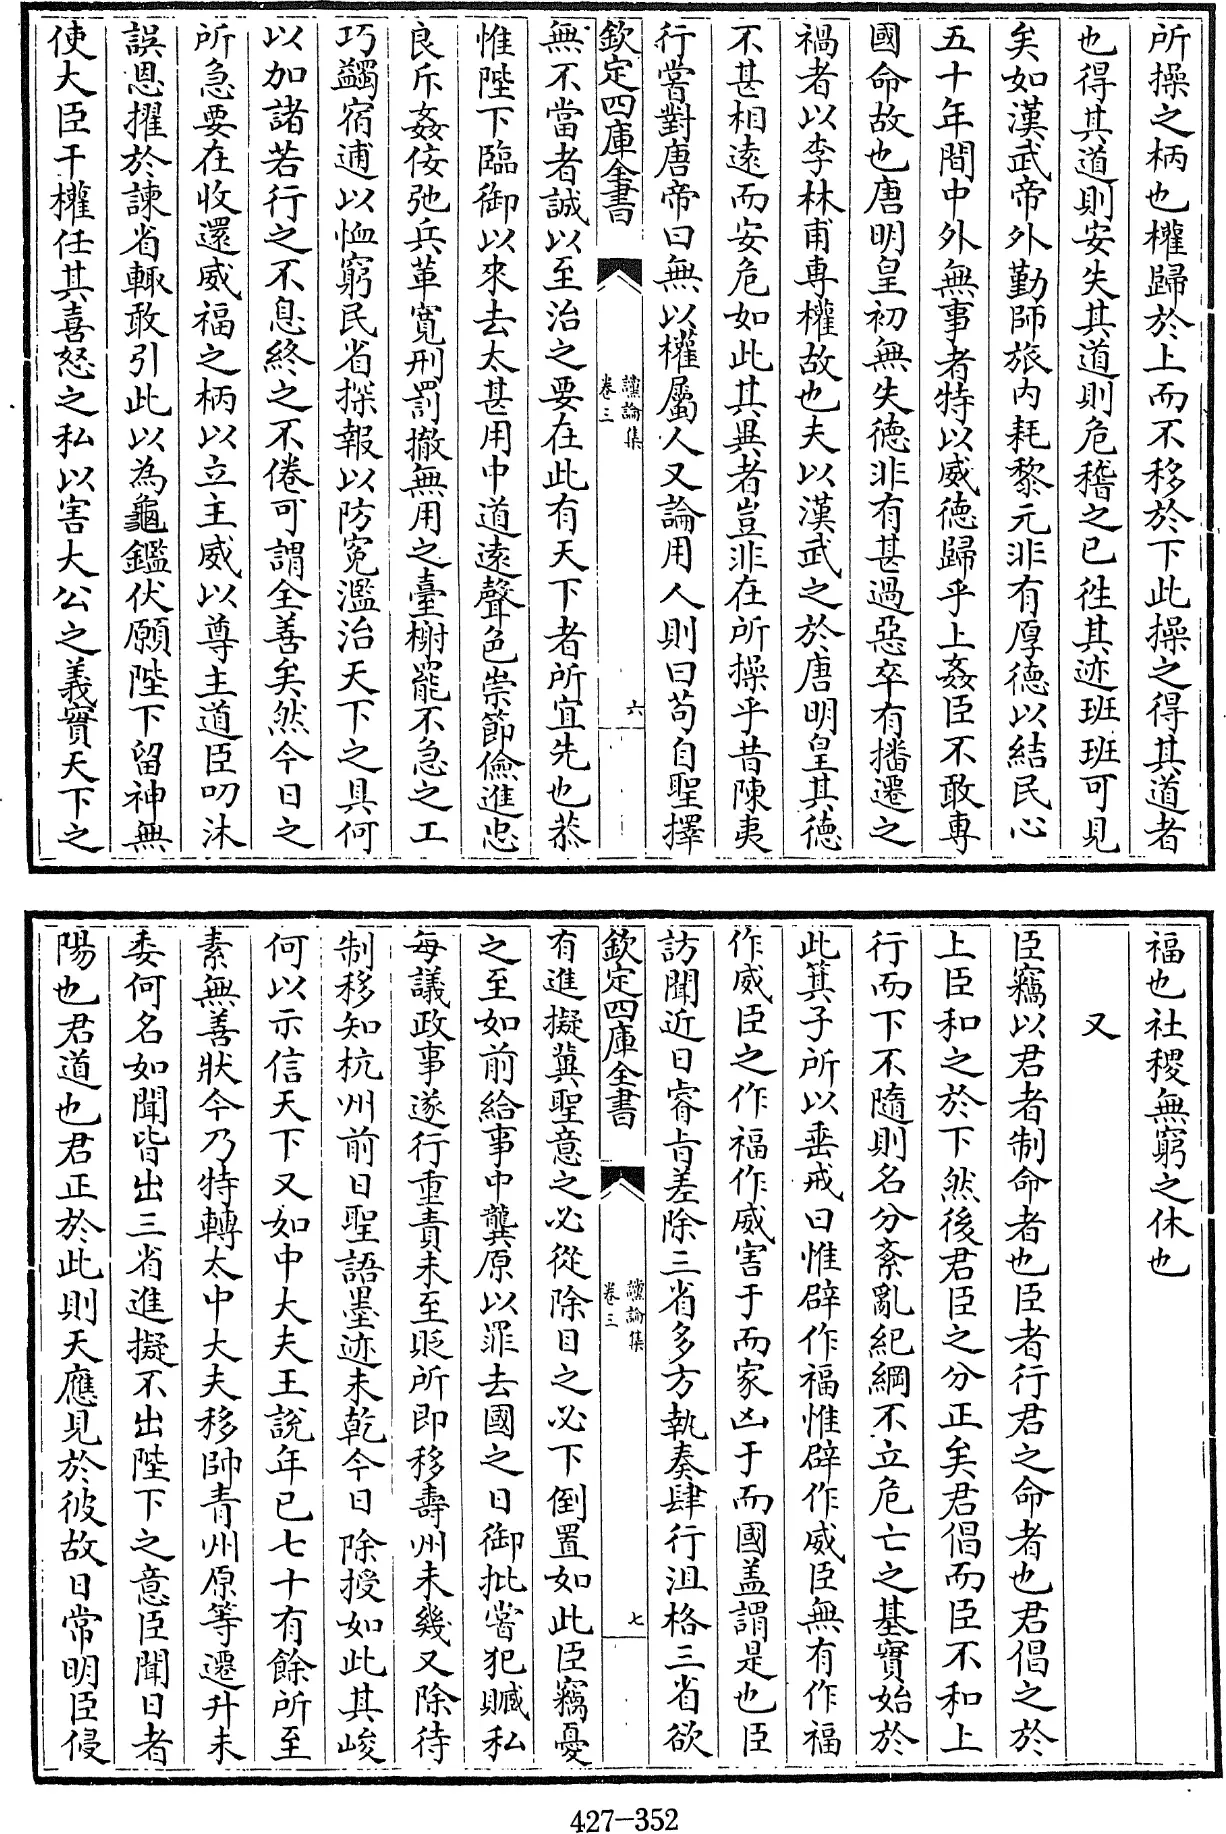 所操之柄也權歸於上而不移於下此操之得其道者
也得其道則安失其道則危稽之已徃其迹班班可見
矣如漢武帝外勤師旅内耗黎元非有厚德以結民心
五十年間中外無事者特以威德歸乎上姦臣不敢專
國命故也唐明皇初無失德非有甚過惡卒有播遷之
禍者以李林甫專權故也夫以漢武之於唐明皇其德
不甚相遠而安危如此其異者豈非在所操乎昔陳夷
行嘗對唐帝曰無以權屬人又論用人則曰苟自聖擇
欽定四庫全書
讜論集
卷三
六
無不當者誠以至治之要在此有天下者所宜先也恭
惟陛下臨御以來去太甚用中道逺聲色崇節儉進忠
良斥姦佞弛兵革寛刑罰撤無用之臺榭罷不急之工
巧蠲宿逋以恤窮民省探報以防寃濫治天下之具何
以加諸若行之不息終之不倦可謂全善矣然今日之
所急要在收還威福之柄以立主威以尊主道臣叨沐
誤恩擢於諫省輙敢引此以為龜鑑伏願陛下留神無
使大臣干權任其喜怒之私以害大公之義實天下之
福也社稷無窮之休也
又
臣竊以君者制命者也臣者行君之命者也君倡之於
上臣和之於下然後君臣之分正矣君倡而臣不和上
行而下不隨則名分紊亂紀綱不立危亡之基實始於
此箕子所以垂戒曰惟辟作福惟辟作威臣無有作福
作威臣之作福作威害于而家凶于而國盖謂是也臣
訪聞近日睿旨差除三省多方執奏肆行沮格三省欲
欽定四庫全書
讜論集
卷三
七
有進擬冀聖意之必從除目之必下倒置如此臣竊憂
之至如前給事中龔原以罪去國之日御批嘗犯贓私
每議政事遂行重責未至貶所即移壽州未幾又除待
制移知杭州前日聖語墨迹未乾今日除授如此其峻
何以示信天下又如中大夫王說年已七十有餘所至
素無善狀今乃特轉太中大夫移帥青州原等遷升未
委何名如聞皆出三省進擬不出陛下之意臣聞日者
陽也君道也君正於此則天應見於彼故日常明臣侵
427-352